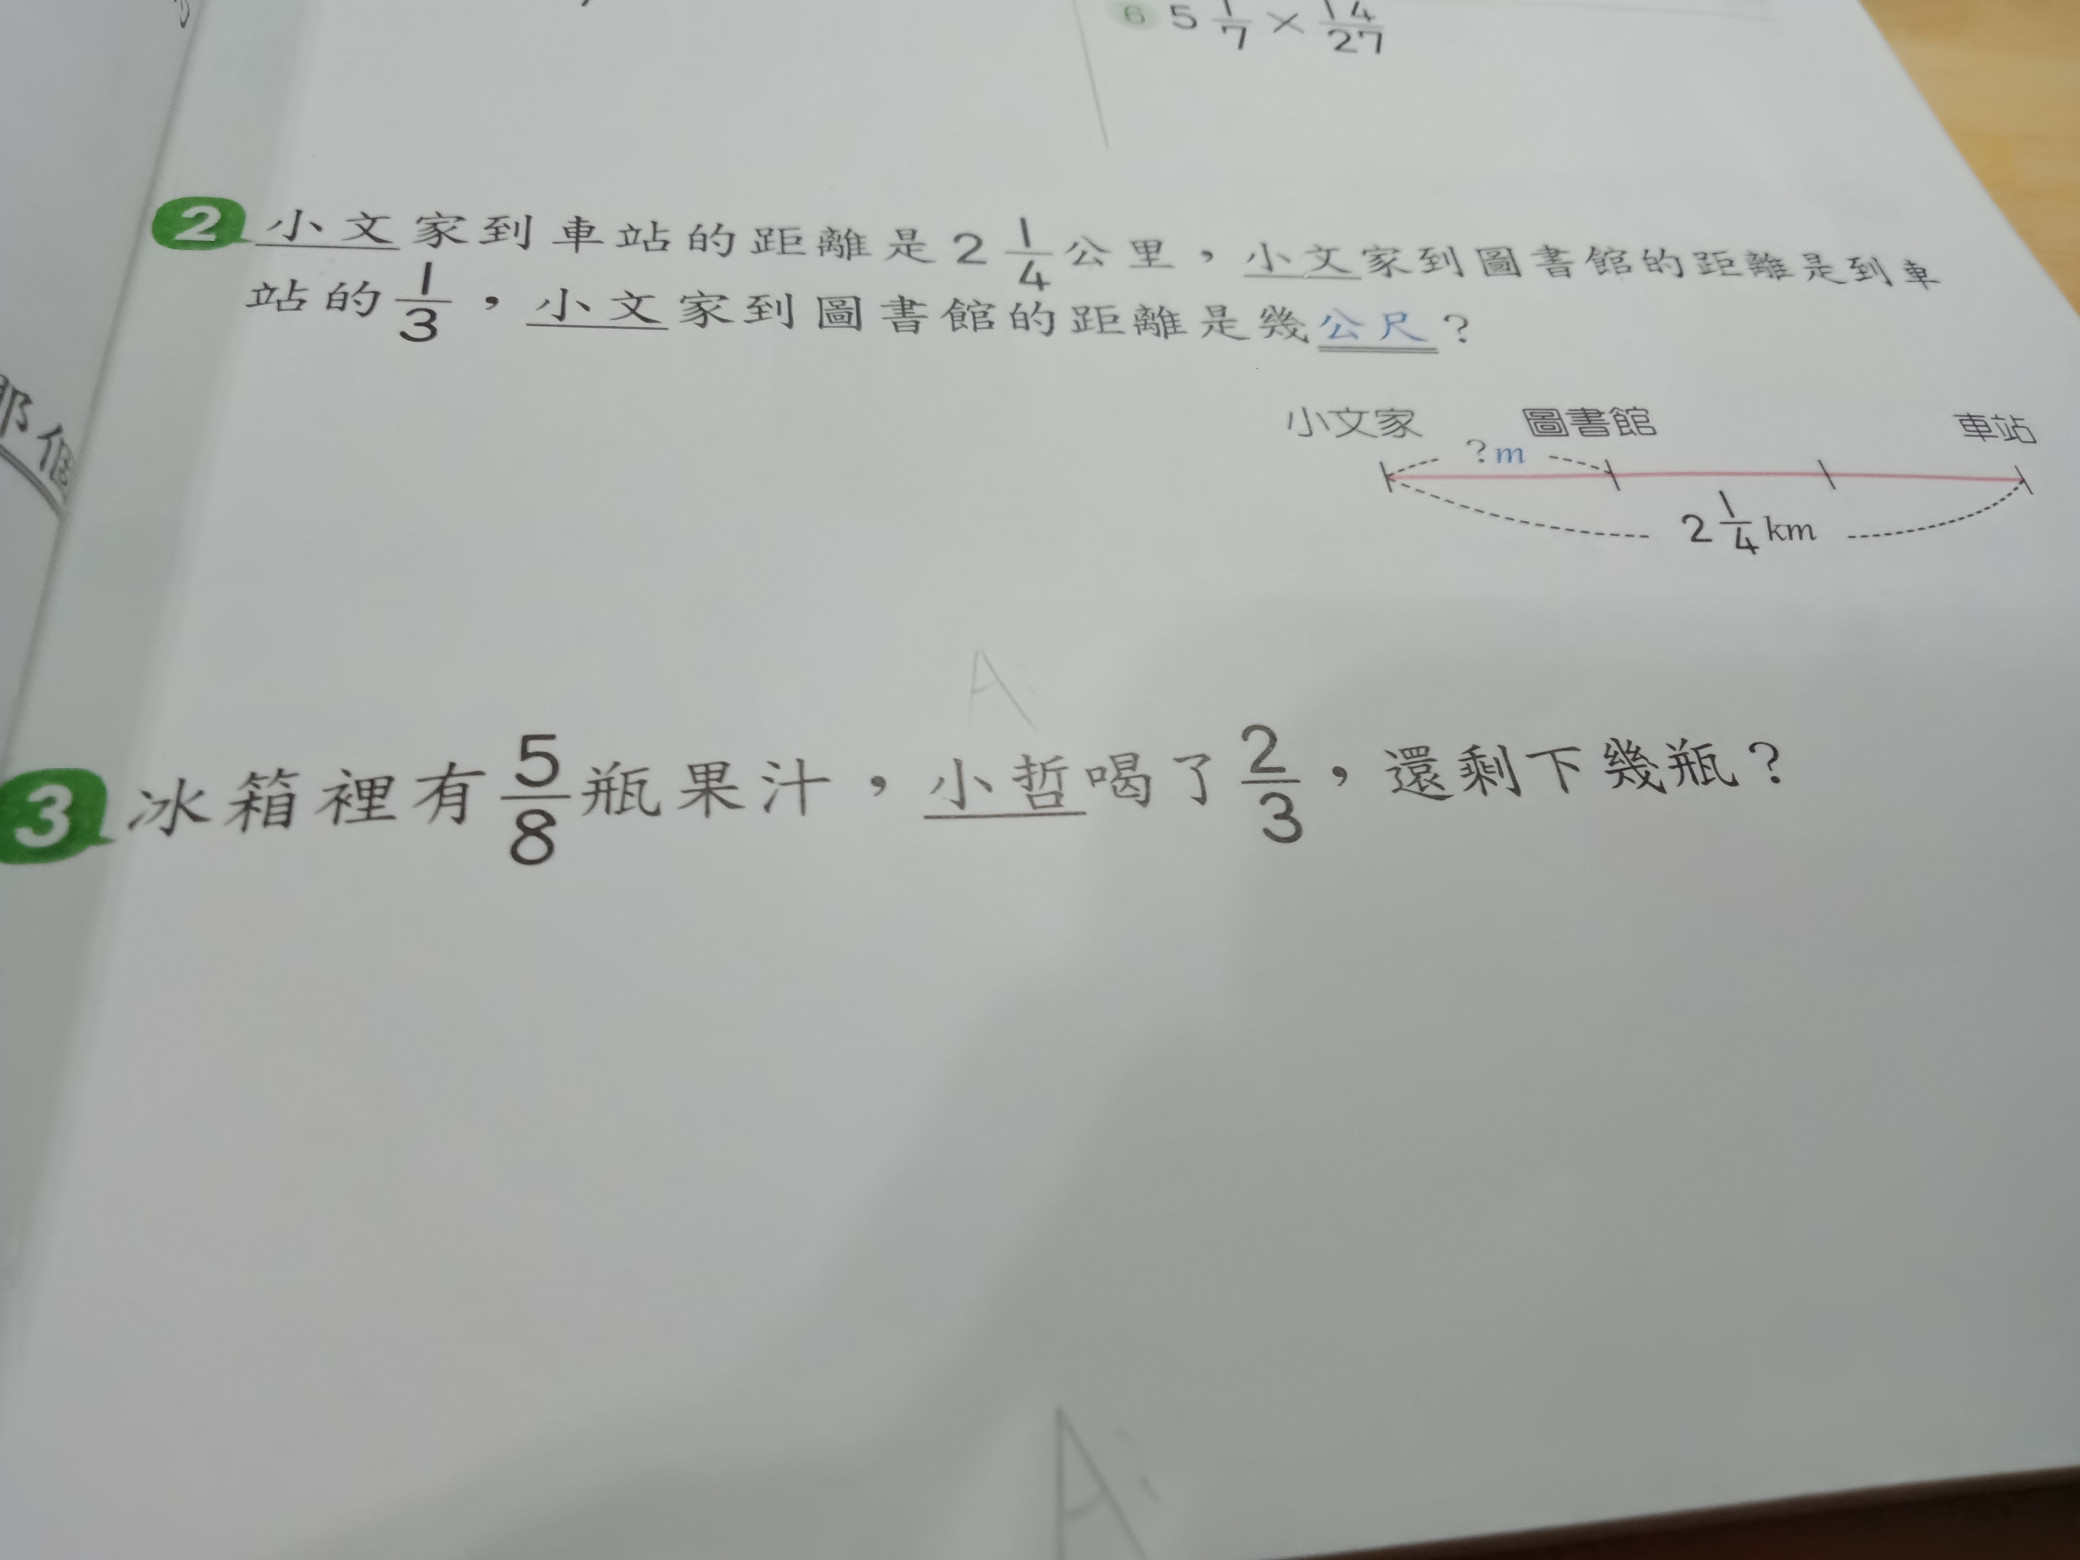 6 5 1/7 × 14/27
2 小文家到車站的距離是2 1/4公里，小文家到圖書館的距離是到車
站的1/3，小文家到圖書館的距離是幾公尺？
小文家 圖書館 車站
?m
2 1/4 km
A:
3 冰箱裡有5/8瓶果汁，小哲喝了2/3，還剩下幾瓶？
A:
那個